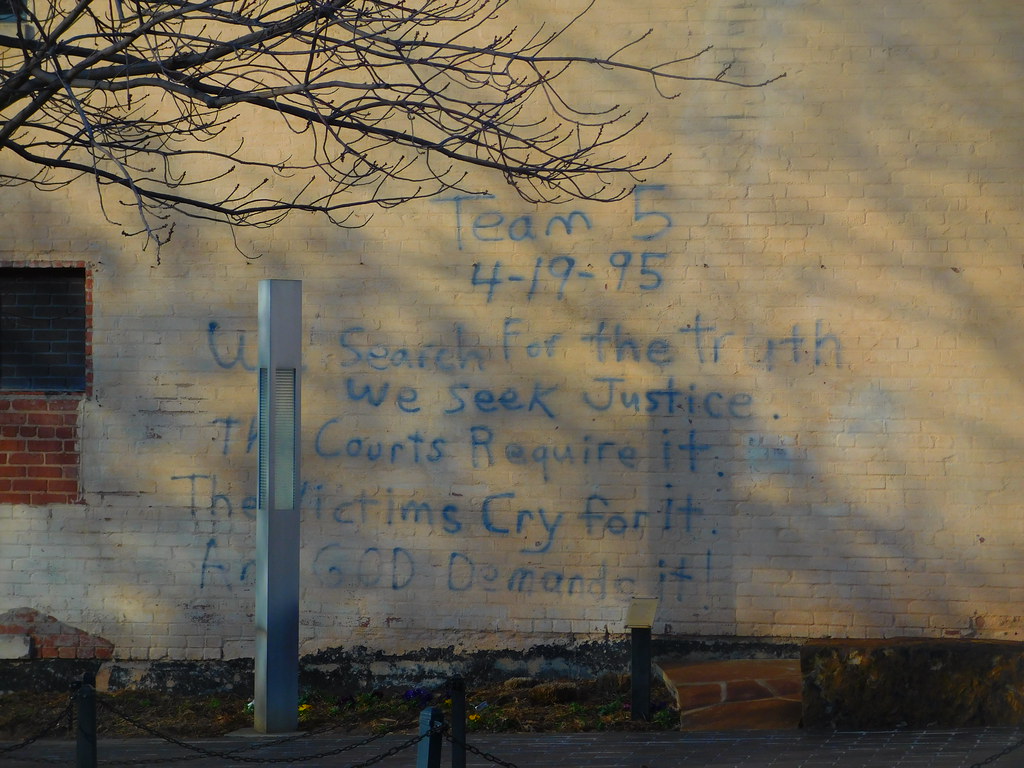 Team 5
4-19-95
Search For the truth
We Seek Justice.
Courts Require it.
The Victims Cry for it.
GOD Demands it!